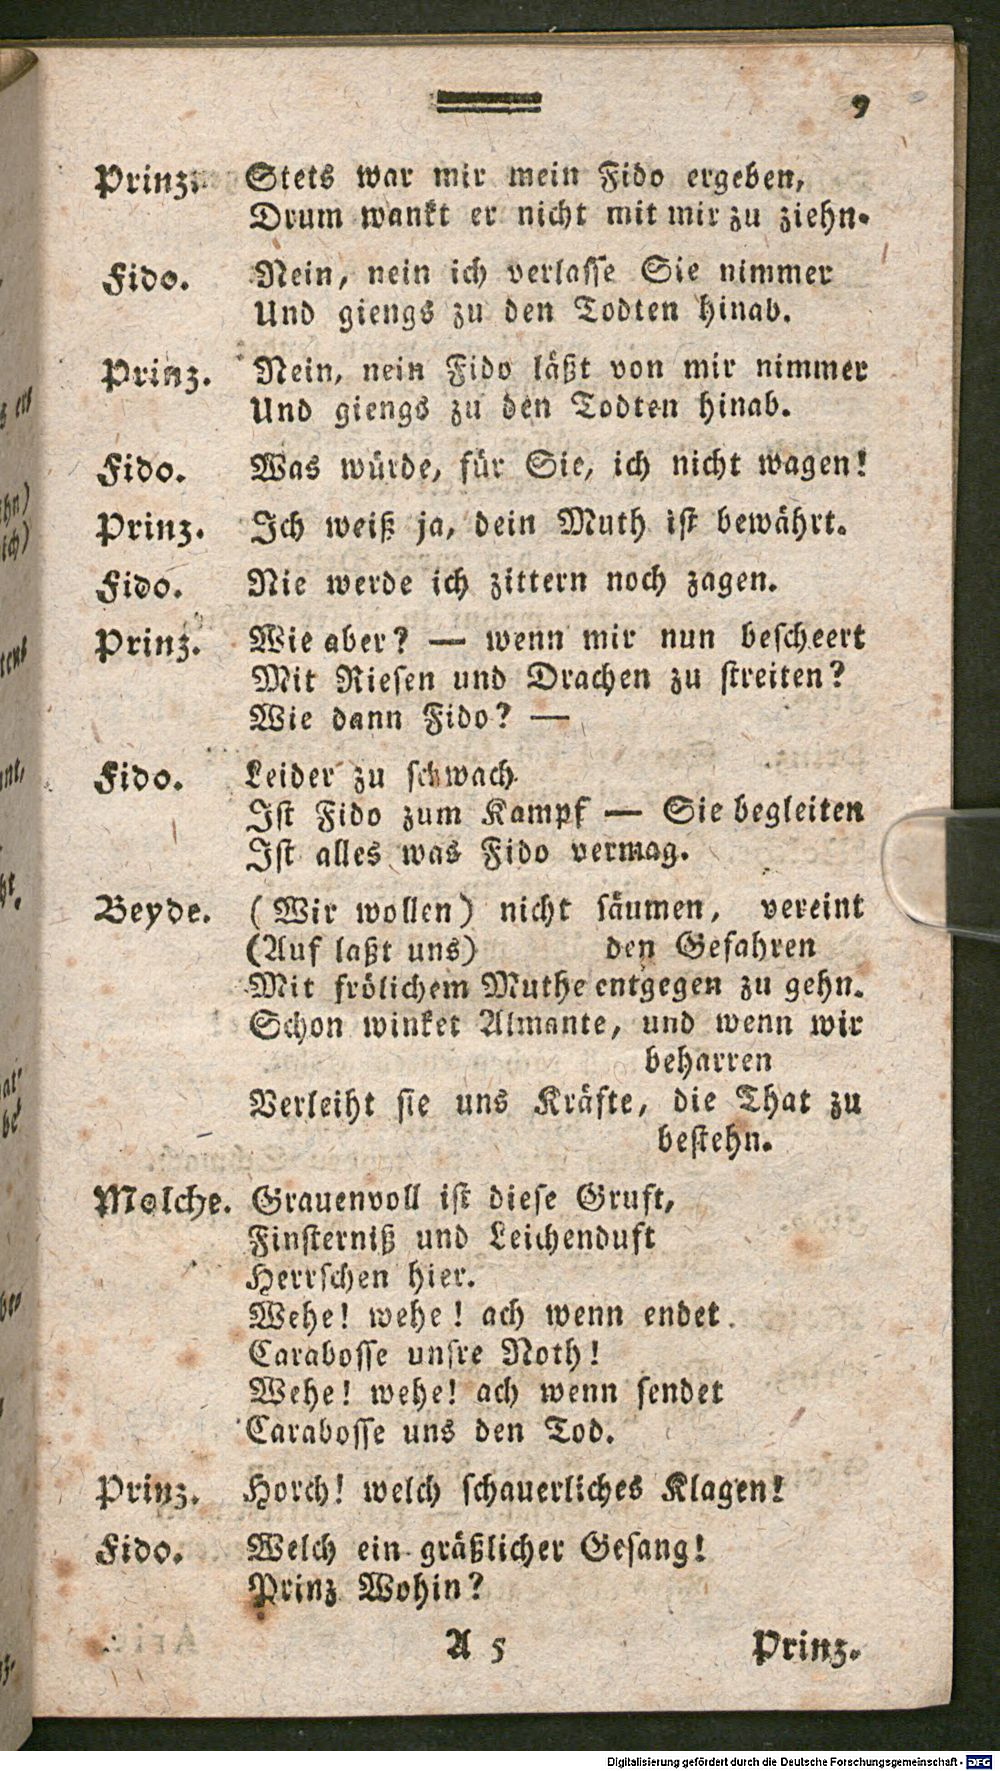 9
Prinz. Stets war mir mein Fido ergeben,
Drum wankt er nicht mit mir zu ziehn.
Fido. Nein, nein ich verlasse Sie nimmer
Und giengs zu den Todten hinab.
Prinz. Nein, nein Fido läßt von mir nimmer
Und giengs zu den Todten hinab.
Fido. Was würde, für Sie, ich nicht wagen!
Prinz. Ich weiß ja, dein Muth ist bewährt.
Fido. Nie werde ich zittern noch zagen.
Prinz. Wie aber? — wenn mir nun bescheert
Mit Riesen und Drachen zu streiten?
Wie dann Fido? —
Fido. Leider zu schwach
Ist Fido zum Kampf — Sie begleiten
Ist alles was Fido vermag.
Beyde. (Wir wollen) nicht säumen, vereint
(Auf laßt uns) den Gefahren
Mit frölichem Muthe entgegen zu gehn.
Schon winket Almante, und wenn wir
beharren
Verleiht sie uns Kräfte, die That zu
bestehn.
Molche. Grauenvoll ist diese Gruft,
Finsterniß und Leichenduft
Herrschen hier.
Wehe! wehe! ach wenn endet
Carabosse unsre Noth!
Wehe! wehe! ach wenn sendet
Carabosse uns den Tod.
Prinz. Horch! welch schauerliches Klagen!
Fido. Welch ein gräßlicher Gesang!
Prinz Wohin?
A 5 Prinz.
Digitalisierung gefördert durch die Deutsche Forschungsgemeinschaft - DFG